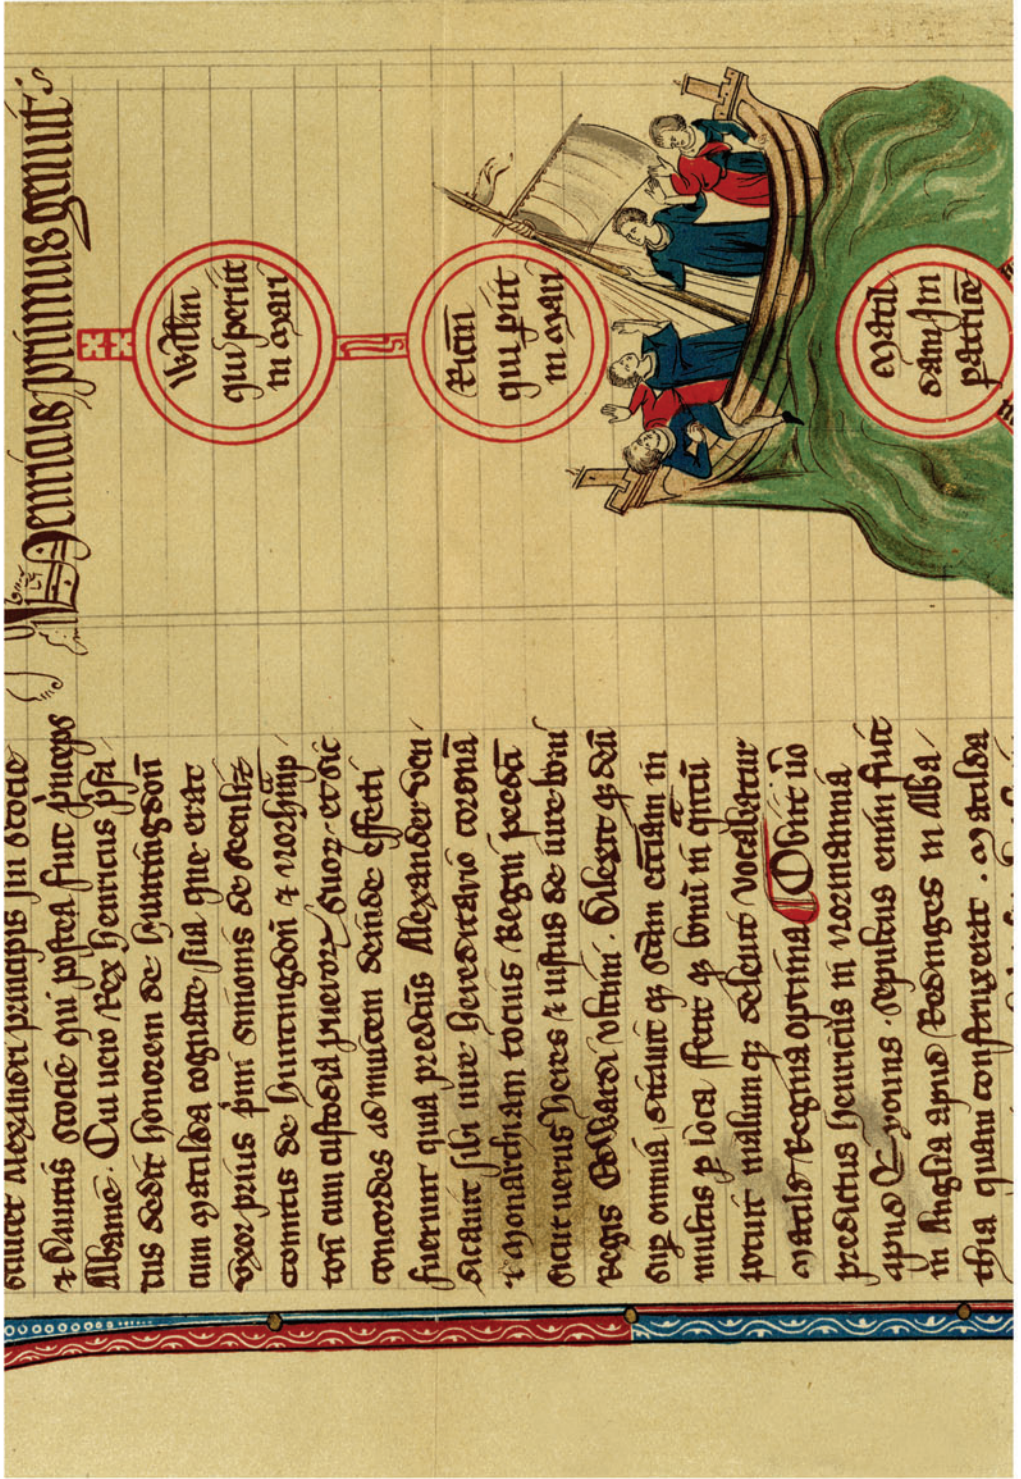 Henricus primus genuit
Willm
qui periit
in mari
Ricm
qui piit
in mari
Matil
dam im
patricē
Alexandri principis scocie
⁊ Dauitis scocie qui postea fuit p̄nceps
Albanie. Cui uero Rex henricus p̄fa
tus dedit honorem de huntingdon̄
cum matilda cognate sua que erat
uxor prius simonis de senliz
comitis de huntingdon̄ ⁊ norhmp
ton̄ cum custodia pueror suor et sic
concordes adinuicem deinde effecti
fuerunt qua predcūs Alexander ven
dicauit sibi iure hereditario coronā
⁊ monarchiam tocius Regni predcī
sicut uerus heres ⁊ iustus de iure boni
Regis Edwardi ultimi. Dilexit qꝫ deū
sup omnia, ditauit qꝫ scām ecc̄iam in
multis p loca fecit qꝫ bonū in qntū
potuit malumqꝫ deleuit vocabatur
matild Regina optima Obiit ūo
predictus henricus in normannia
apud Lyouns. sepultus enim fuit
in Anglia apud Redinges in Abba
thia quam construxerat. matilda